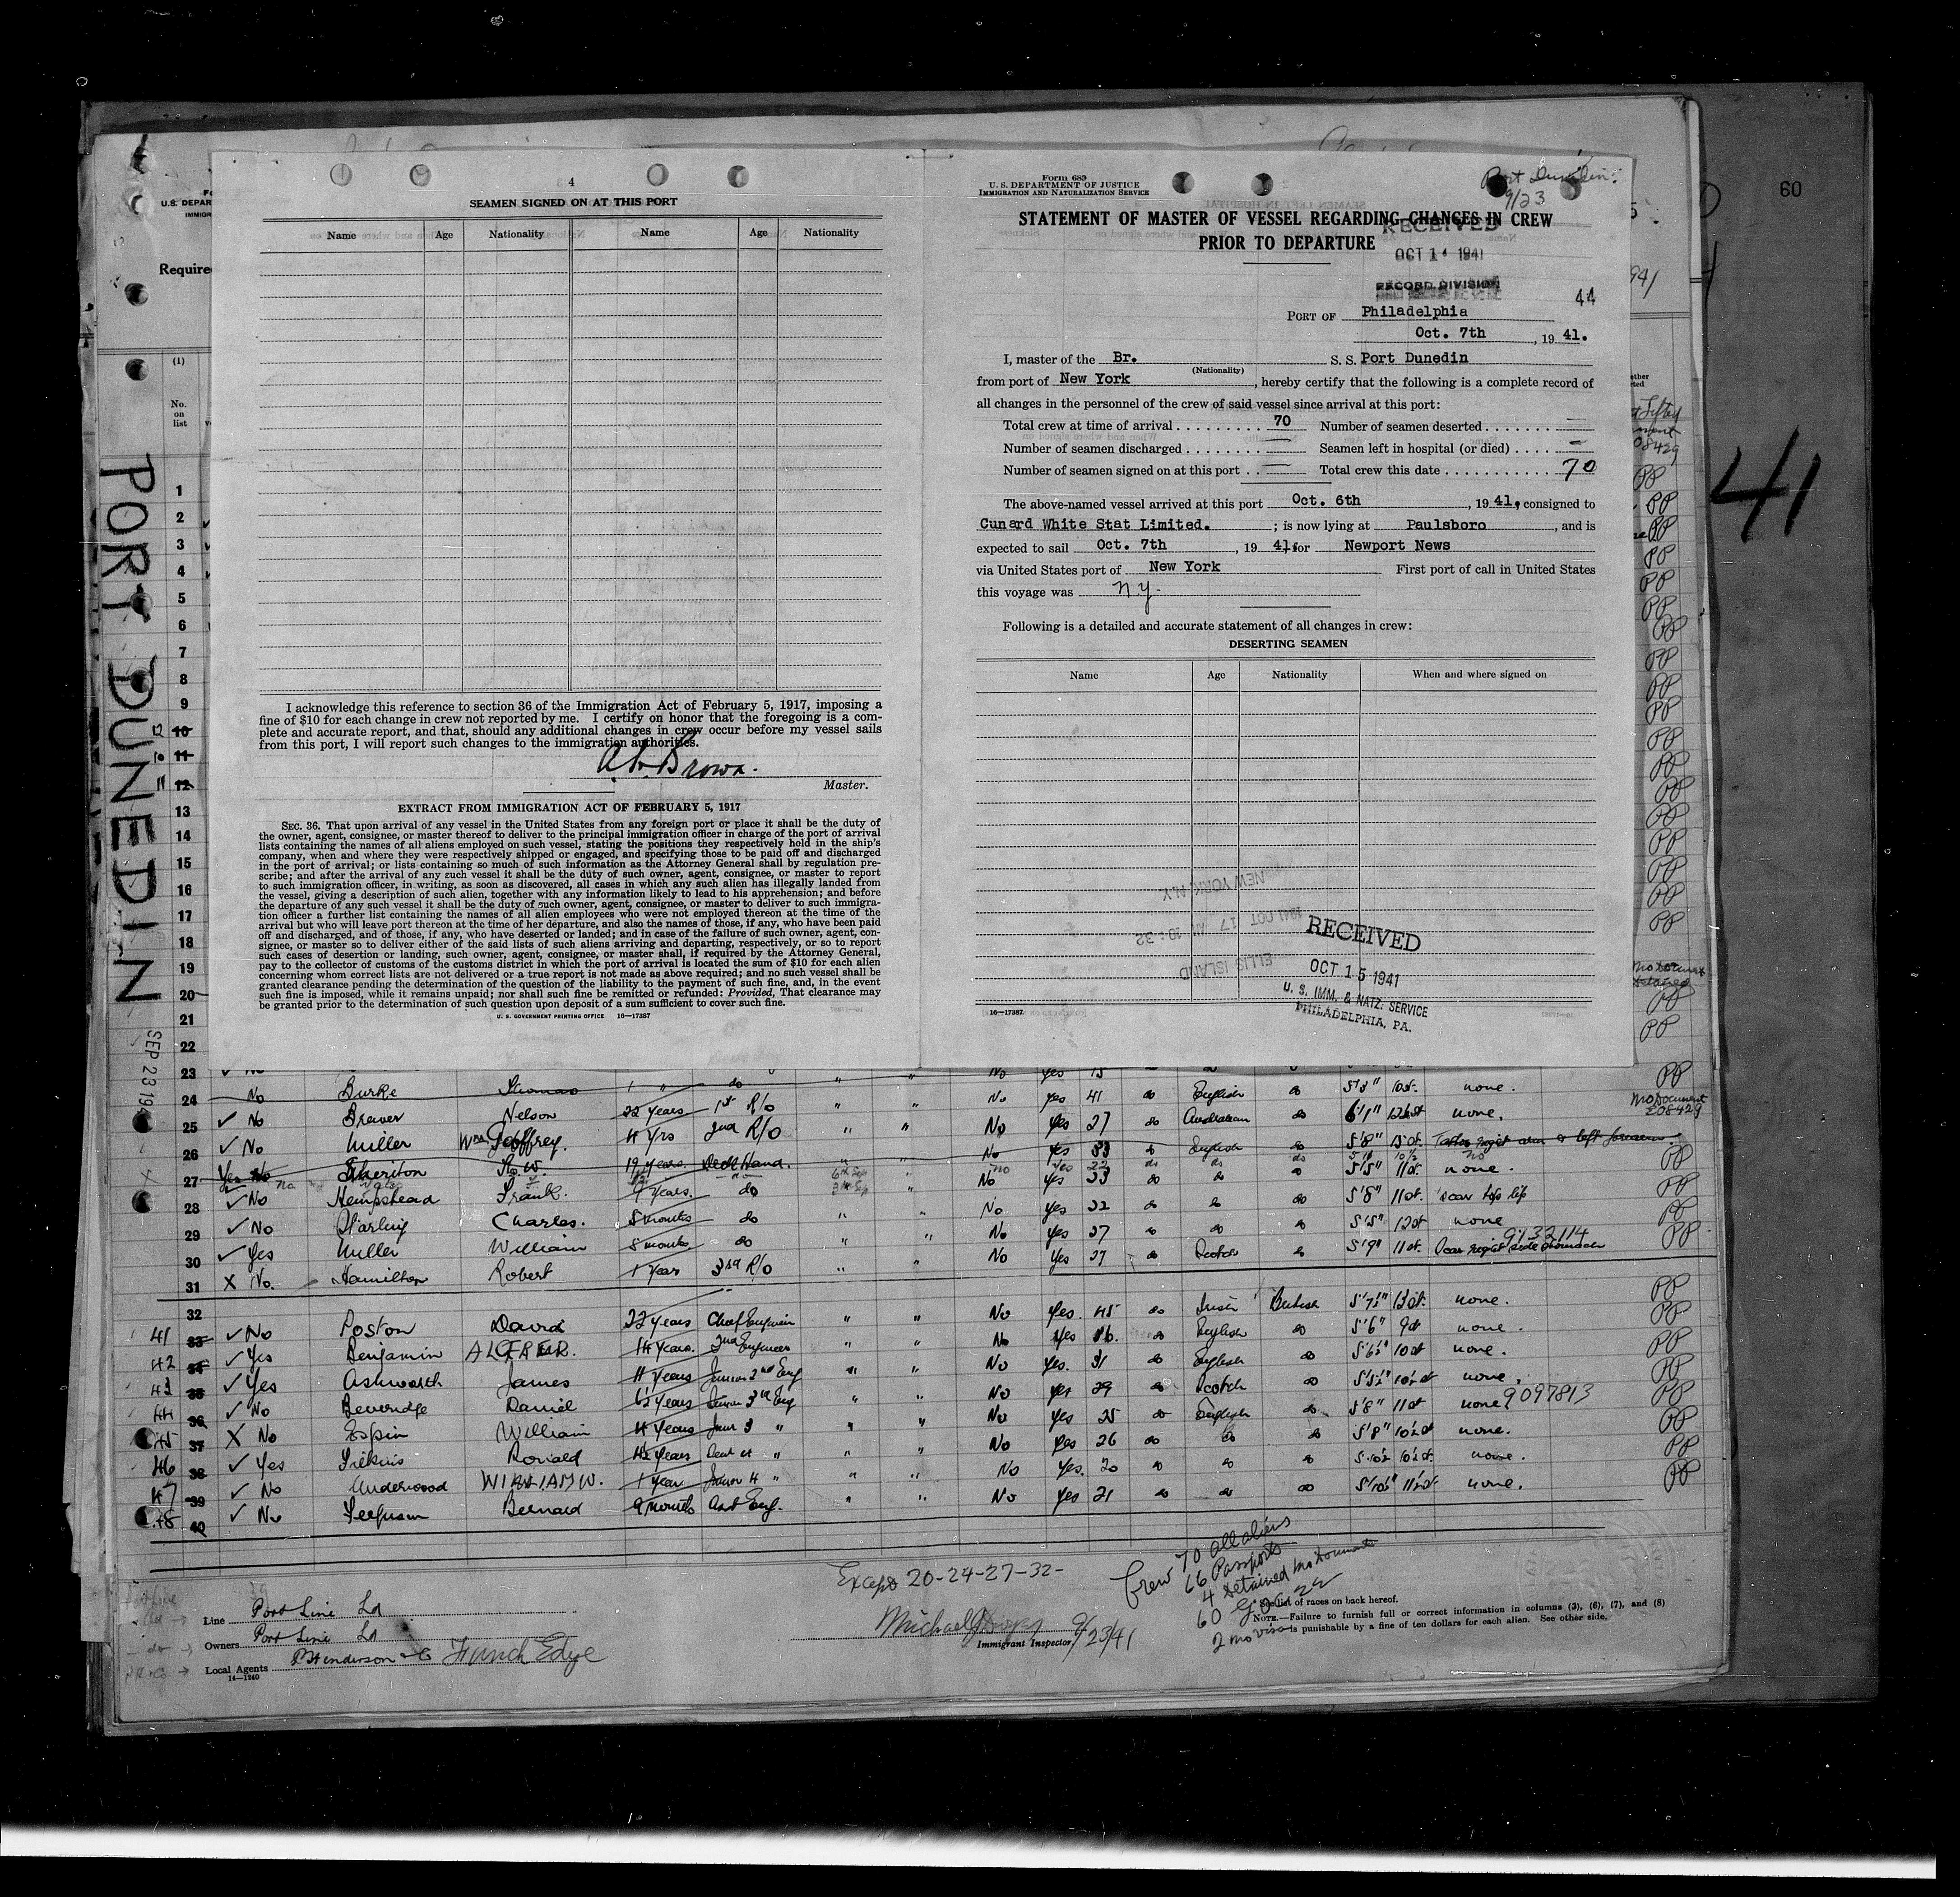 60
41
PORT DUNEDIN
SEP 23 19
U.S. DEPAR
Require
(1)
No.
on
list
4
SEAMEN SIGNED ON AT THIS PORT
Name Age Nationality Name Age Nationality
I acknowledge this reference to section 36 of the Immigration Act of February 5, 1917, imposing a
fine of $10 for each change in crew not reported by me. I certify on honor that the foregoing is a com-
plete and accurate report, and that, should any additional changes in crew occur before my vessel sails
from this port, I will report such changes to the immigration authorities.
Brown.
Master.
EXTRACT FROM IMMIGRATION ACT OF FEBRUARY 5, 1917
SEC. 36. That upon arrival of any vessel in the United States from any foreign port or place it shall be the duty of
the owner, agent, consignee, or master thereof to deliver to the principal immigration officer in charge of the port of arrival
lists containing the names of all aliens employed on such vessel, stating the positions they respectively hold in the ship's
company, when and where they were respectively shipped or engaged, and specifying those to be paid off and discharged
in the port of arrival; or lists containing so much of such information as the Attorney General shall by regulation pre-
scribe; and after the arrival of any such vessel it shall be the duty of such owner, agent, consignee, or master to report
to such immigration officer, in writing, as soon as discovered, all cases in which any such alien has illegally landed from
the vessel, giving a description of such alien, together with any information likely to lead to his apprehension; and before
the departure of any such vessel it shall be the duty of such owner, agent, consignee, or master to deliver to such immigra-
tion officer a further list containing the names of all alien employees who were not employed thereon at the time of the
arrival but who will leave port thereon at the time of her departure, and also the names of those, if any, who have been paid
off and discharged, and of those, if any, who have deserted or landed; and in case of the failure of such owner, agent, con-
signee, or master so to deliver either of the said lists of such aliens arriving and departing, respectively, or so to report
such cases of desertion or landing, such owner, agent, consignee, or master shall, if required by the Attorney General,
pay to the collector of customs of the customs district in which the port of arrival is located the sum of $10 for each alien
concerning whom correct lists are not delivered or a true report is not made as above required; and no such vessel shall be
granted clearance pending the determination of the question of the liability to the payment of such fine, and, in the event
such fine is imposed, while it remains unpaid; nor shall such fine be remitted or refunded: Provided, That clearance may
be granted prior to the determination of such question upon deposit of a sum sufficient to cover such fine.
U. S. GOVERNMENT PRINTING OFFICE 16—17387
Form 689
U. S. DEPARTMENT OF JUSTICE
IMMIGRATION AND NATURALIZATION SERVICE
Port Dunedin
9/23
STATEMENT OF MASTER OF VESSEL REGARDING CHANGES IN CREW
PRIOR TO DEPARTURE
RECEIVED
OCT 14 1941
RECORD DIVISION
44
PORT OF Philadelphia
Oct. 7th, 19 41.
I, master of the Br. S. S. Port Dunedin
(Nationality)
from port of New York, hereby certify that the following is a complete record of
all changes in the personnel of the crew of said vessel since arrival at this port:
Total crew at time of arrival 70 Number of seamen deserted —
Number of seamen discharged — Seamen left in hospital (or died) —
Number of seamen signed on at this port — Total crew this date 70
The above-named vessel arrived at this port Oct. 6th, 19 41, consigned to
Cunard White Stat Limited. ; is now lying at Paulsboro, and is
expected to sail Oct. 7th, 19 41 for Newport News
via United States port of New York First port of call in United States
this voyage was N Y.
Following is a detailed and accurate statement of all changes in crew:
DESERTING SEAMEN
Name Age Nationality When and where signed on
ELLIS ISLAND
1941 OCT 17 AM 10:32
NEW YORK, N.Y.
RECEIVED
OCT 15 1941
U. S. IMM. & NATZ. SERVICE
PHILADELPHIA, PA.
16—17387
1
2
3
4
5
6
7
8
9
10
11
12
13
14
15
16
17
18
19
20
21
22
23
24 No Burke Thomas 1 " do " " No yes 41 do English do 5'3" 10st. none.
25 ✓ No Brewer Nelson 22 years 1st R/o " " No yes 27 do Australian do 6'1" none.
26 ✓ No Miller Wm Geoffrey. 4 yrs 2nd R/o " "
27 19 years Deck Hand. English do 5'8"
28 ✓ No Hempstead Frank. 9 years. do " No yes 33 do do do 5'5" 11st. none.
29 ✓ No Charles. 5 months do " " No yes 32 do do do 5'8" 11st. scar top lip
30 ✓ Yes Miller William 8 months do " " No yes 37 do do do 5'5" 12st none
31 X No. Hamilton Robert 1 year 3rd R/o " " No yes 27 do Scotch do 5'9" 11st. 9132114
32
41 33 ✓ No Poston David 22 years Chief Engineer " " No yes. 45 do Irish British 5'7½" none.
42 34 ✓ Yes Benjamin ALFRED R. 14 years. 2nd Engineer " " No yes do English do 5'6" 9st none.
43 35 ✓ Yes Ashworth James 4 years Junior 2nd Eng " " No yes. 31 do English do 5'6½" 10st none.
44 36 ✓ No Beveridge Daniel Senior 3rd Eng " " No yes 29 do Scotch do 5'5½" 10½st none.
45 37 X No Espin William 4 years Junr 3 " " " No yes 25 do English do 5'8" 11st none 9097813
46 38 ✓ Yes Ronald " " No yes 26 do do do 5'8" 10½st none.
47 39 ✓ No Underwood WILLIAM W. 1 year Junior 4 " " " No yes. 20 do do do 10½st none.
48 40 ✓ No Ferguson Bernard 9 months Asst Eng. " " No yes 21 do do do 5'10½" 11½st none.
PP
No Document
E08429
Except 20-24-27-32-
Crew 70 all aliens
66 Passports
4 Detained no Documents
60
2 no visa
Line Port Line Ld
Owners Port Line Ld
Local Agents
14—1240
Michael
Immigrant Inspector 9/23/41
list of races on back hereof.
NOTE.—Failure to furnish full or correct information in columns (3), (6), (7), and (8)
is punishable by a fine of ten dollars for each alien. See other side.